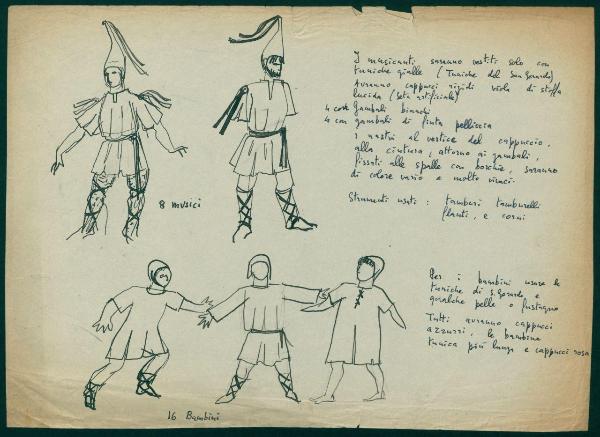 I musicanti saranno vestiti solo con
tuniche gialle (Tuniche del San Gerardo)
Avranno cappucci rigidi viola di stoffa
lucida (seta artificiale)
4 con Gambali bianchi
4 con gambali di finta pelliccia
I nastri al vertice del cappuccio,
alla cintura, attorno ai gambali,
fissati alle spalle con borchie, saranno
di colore vario e molto vivaci.
8 musici
Strumenti usati: tamburi tamburelli
flauti, e corni
Per i bambini usare le
tuniche di S. Gerardo e
qualche pelle o fustagno
Tutti avranno cappucci
azzurri, le bambine
tunica più lunga e cappucci rosa
16 Bambini